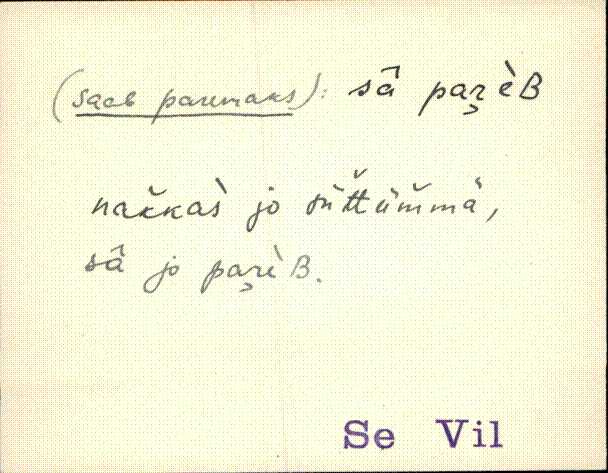 (saab paremaks): sā̂ par̨èB
nakkaš̀ jo sütt̆üm̆mä,
sā̂ jo par̨èB.
Se Vil